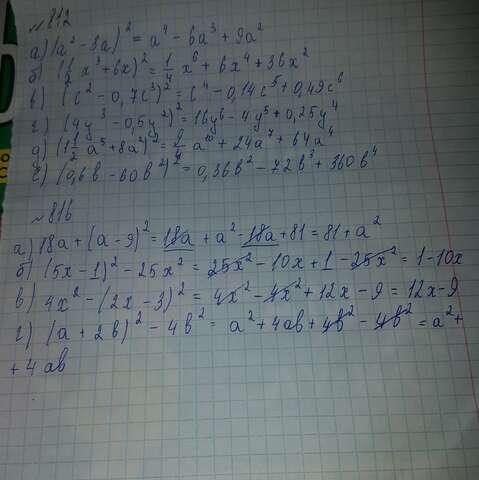 №812
а) (a² - 3a)² = a⁴ - 6a³ + 9a²
б) (½x³ + 6x)² = ¼x⁶ + 6x⁴ + 36x²
в) (c² - 0,7c³)² = c⁴ - 0,14c⁵ + 0,49c⁶
г) (4y³ - 0,5y²)² = 16y⁶ - 4y⁵ + 0,25y⁴
д) (1½a⁵ + 8a²)² = 9/4a¹⁰ + 24a⁷ + 64a⁴
е) (0,6b - 60b²)² = 0,36b² - 72b³ + 360b⁴
№816
а) 18a + (a - 9)² = 18a + a² - 18a + 81 = 81 + a²
б) (5x - 1)² - 25x² = 25x² - 10x + 1 - 25x² = 1 - 10x
в) 4x² - (2x - 3)² = 4x² - 4x² + 12x - 9 = 12x - 9
г) (a + 2b)² - 4b² = a² + 4ab + 4b² - 4b² = a² +
+ 4ab